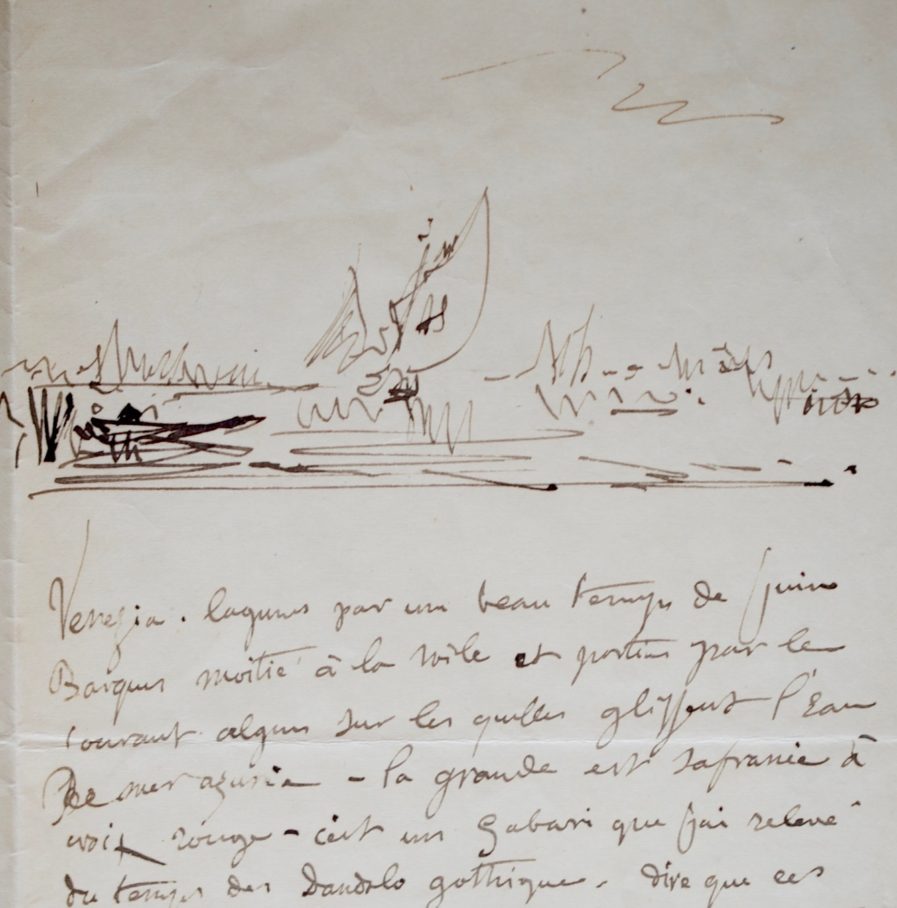 Venezia. lagunes par un beau temps de juin
Barques moitié à la voile et porties par le
courant algues sur les quelles glissent l'Eau
De mer azurie - la grande est safranie à
croix rouge - c'est un Gabari que j'ai relevé
du temps des Dandolo gothique. dire que ces